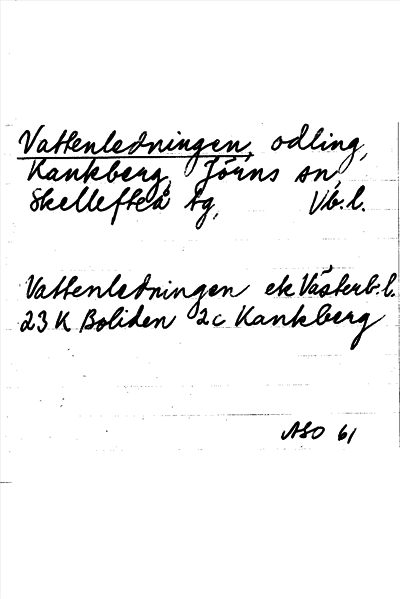 Vattenledningen, odling,
Kankberg, Jörns sn,
Skellefteå tg, Vb.l.
Vattenledningen ek Västerb.l.
23 K Boliden 2c Kankberg
ASO 61